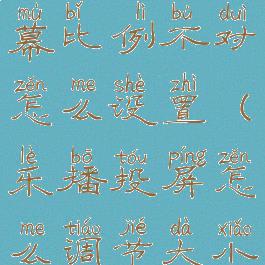 mù bǐ lì bú duì
幕比例不对
zěn me shè zhì
怎么设置（
lè bō tóu píng zěn
乐播投屏怎
me tiáo jié dà xiǎo
么调节大小